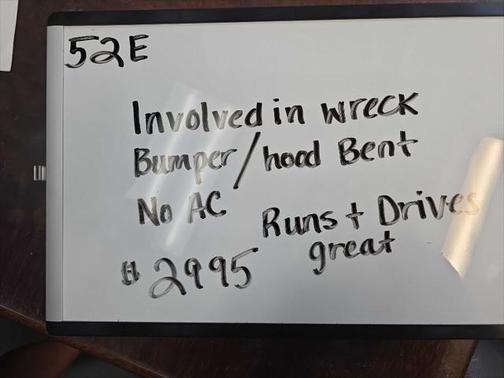 52E
Involved in wreck
Bumper/hood Bent
No AC
Runs + Drives
great
$2995